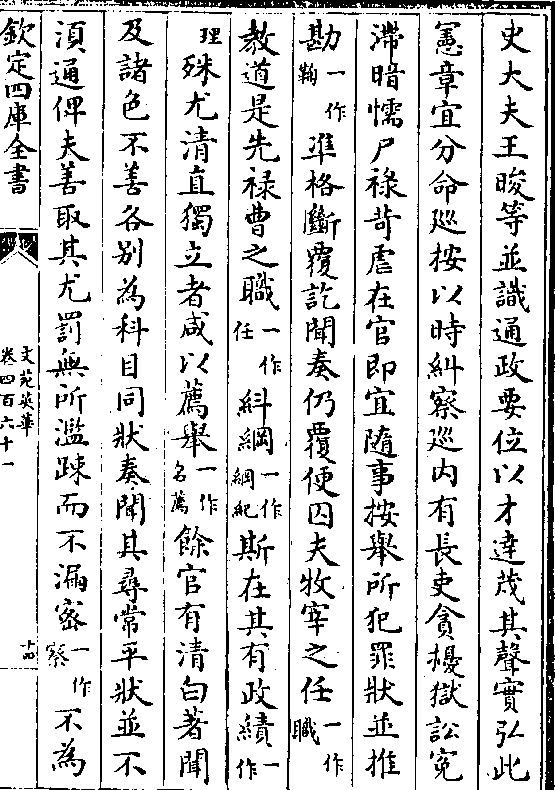 史大夫王晙等並識通政要位以才達茂其聲實弘此
憲章宜分命巡按以時糾察巡内有長吏貪擾獄訟寃
滯暗懦尸禄苛虐在官即宜隨事按舉所犯罪狀並推
勘一作鞫準格斷覆訖聞奏仍覆使囚夫牧宰之任一作職
教道是先禄曹之職一作任糾綱一作綱紀斯在其有政績一作
理殊尤清直獨立者咸以薦舉一作名薦餘官有清白著聞
及諸色不善各别為科目同狀奏聞其尋常平狀並不
湏通俾夫善取其尤罰無所濫踈而不漏宻一作察不為
欽定四庫全書
文苑英華
卷四百六十一
十四